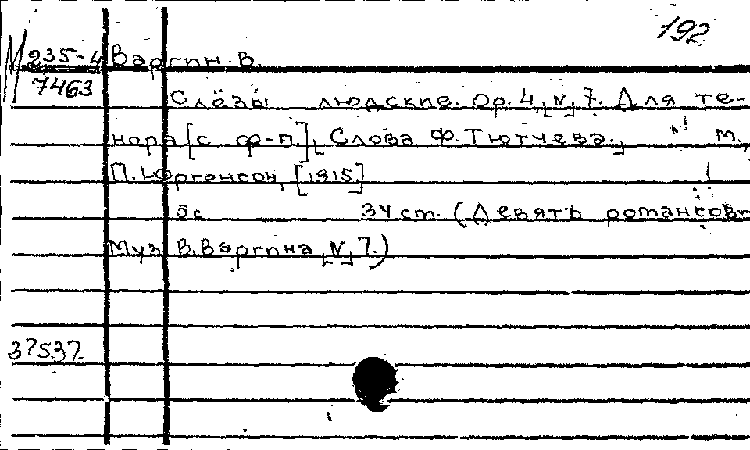 192
М 235-4 Варгин В.
7463
Слёзы людские. Op. 4, № 7. Для те-
нора [с ф-п.], Слова Ф. Тютчева. М.,
П. Юргенсон, [1915]
5с 34 cm. (Девять романсовъ
Муз В. Варгина № 7.)
37537